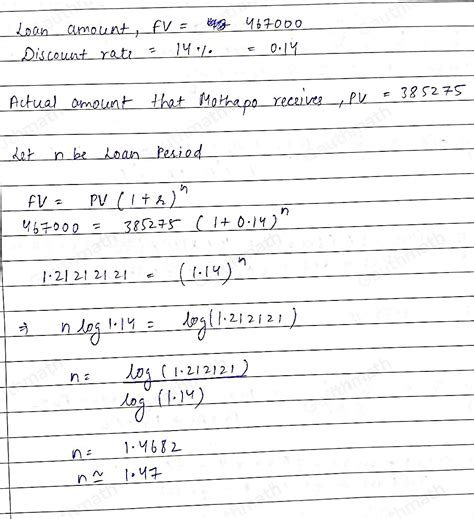 Loan amount, FV = 467000
Discount rate = 14 % = 0.14
Actual amount that Mothapo receives, PV = 385275
Let n be Loan Period
FV = PV (1+r)^n
467000 = 385275 (1+0.14)^n
1.21212121 = (1.14)^n
⇒ n log 1.14 = log(1.212121)
n = log (1.212121)
log (1.14)
n = 1.4682
n ≃ 1.47